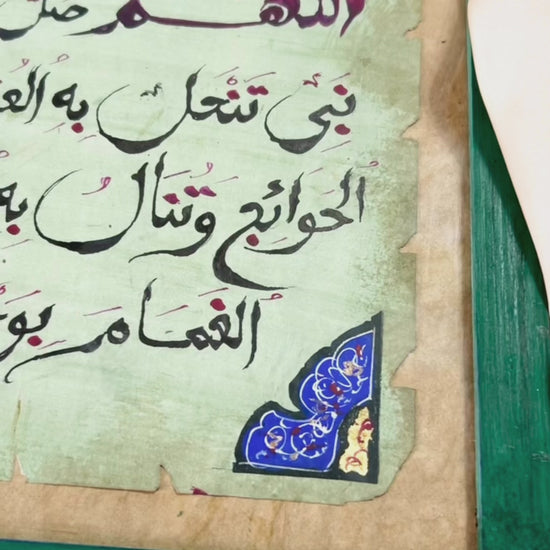 اللهم
نَبِيّ تَنْحَلُ بِهِ
الحَوَائِجُ وَتُنَالُ بِهِ
الغَمَامُ